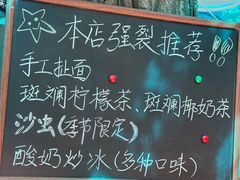 本店强裂推荐!!
手工扯面
斑斓柠檬茶、斑斓椰奶茶
沙虫(季节限定)
酸奶炒冰(多种口味)